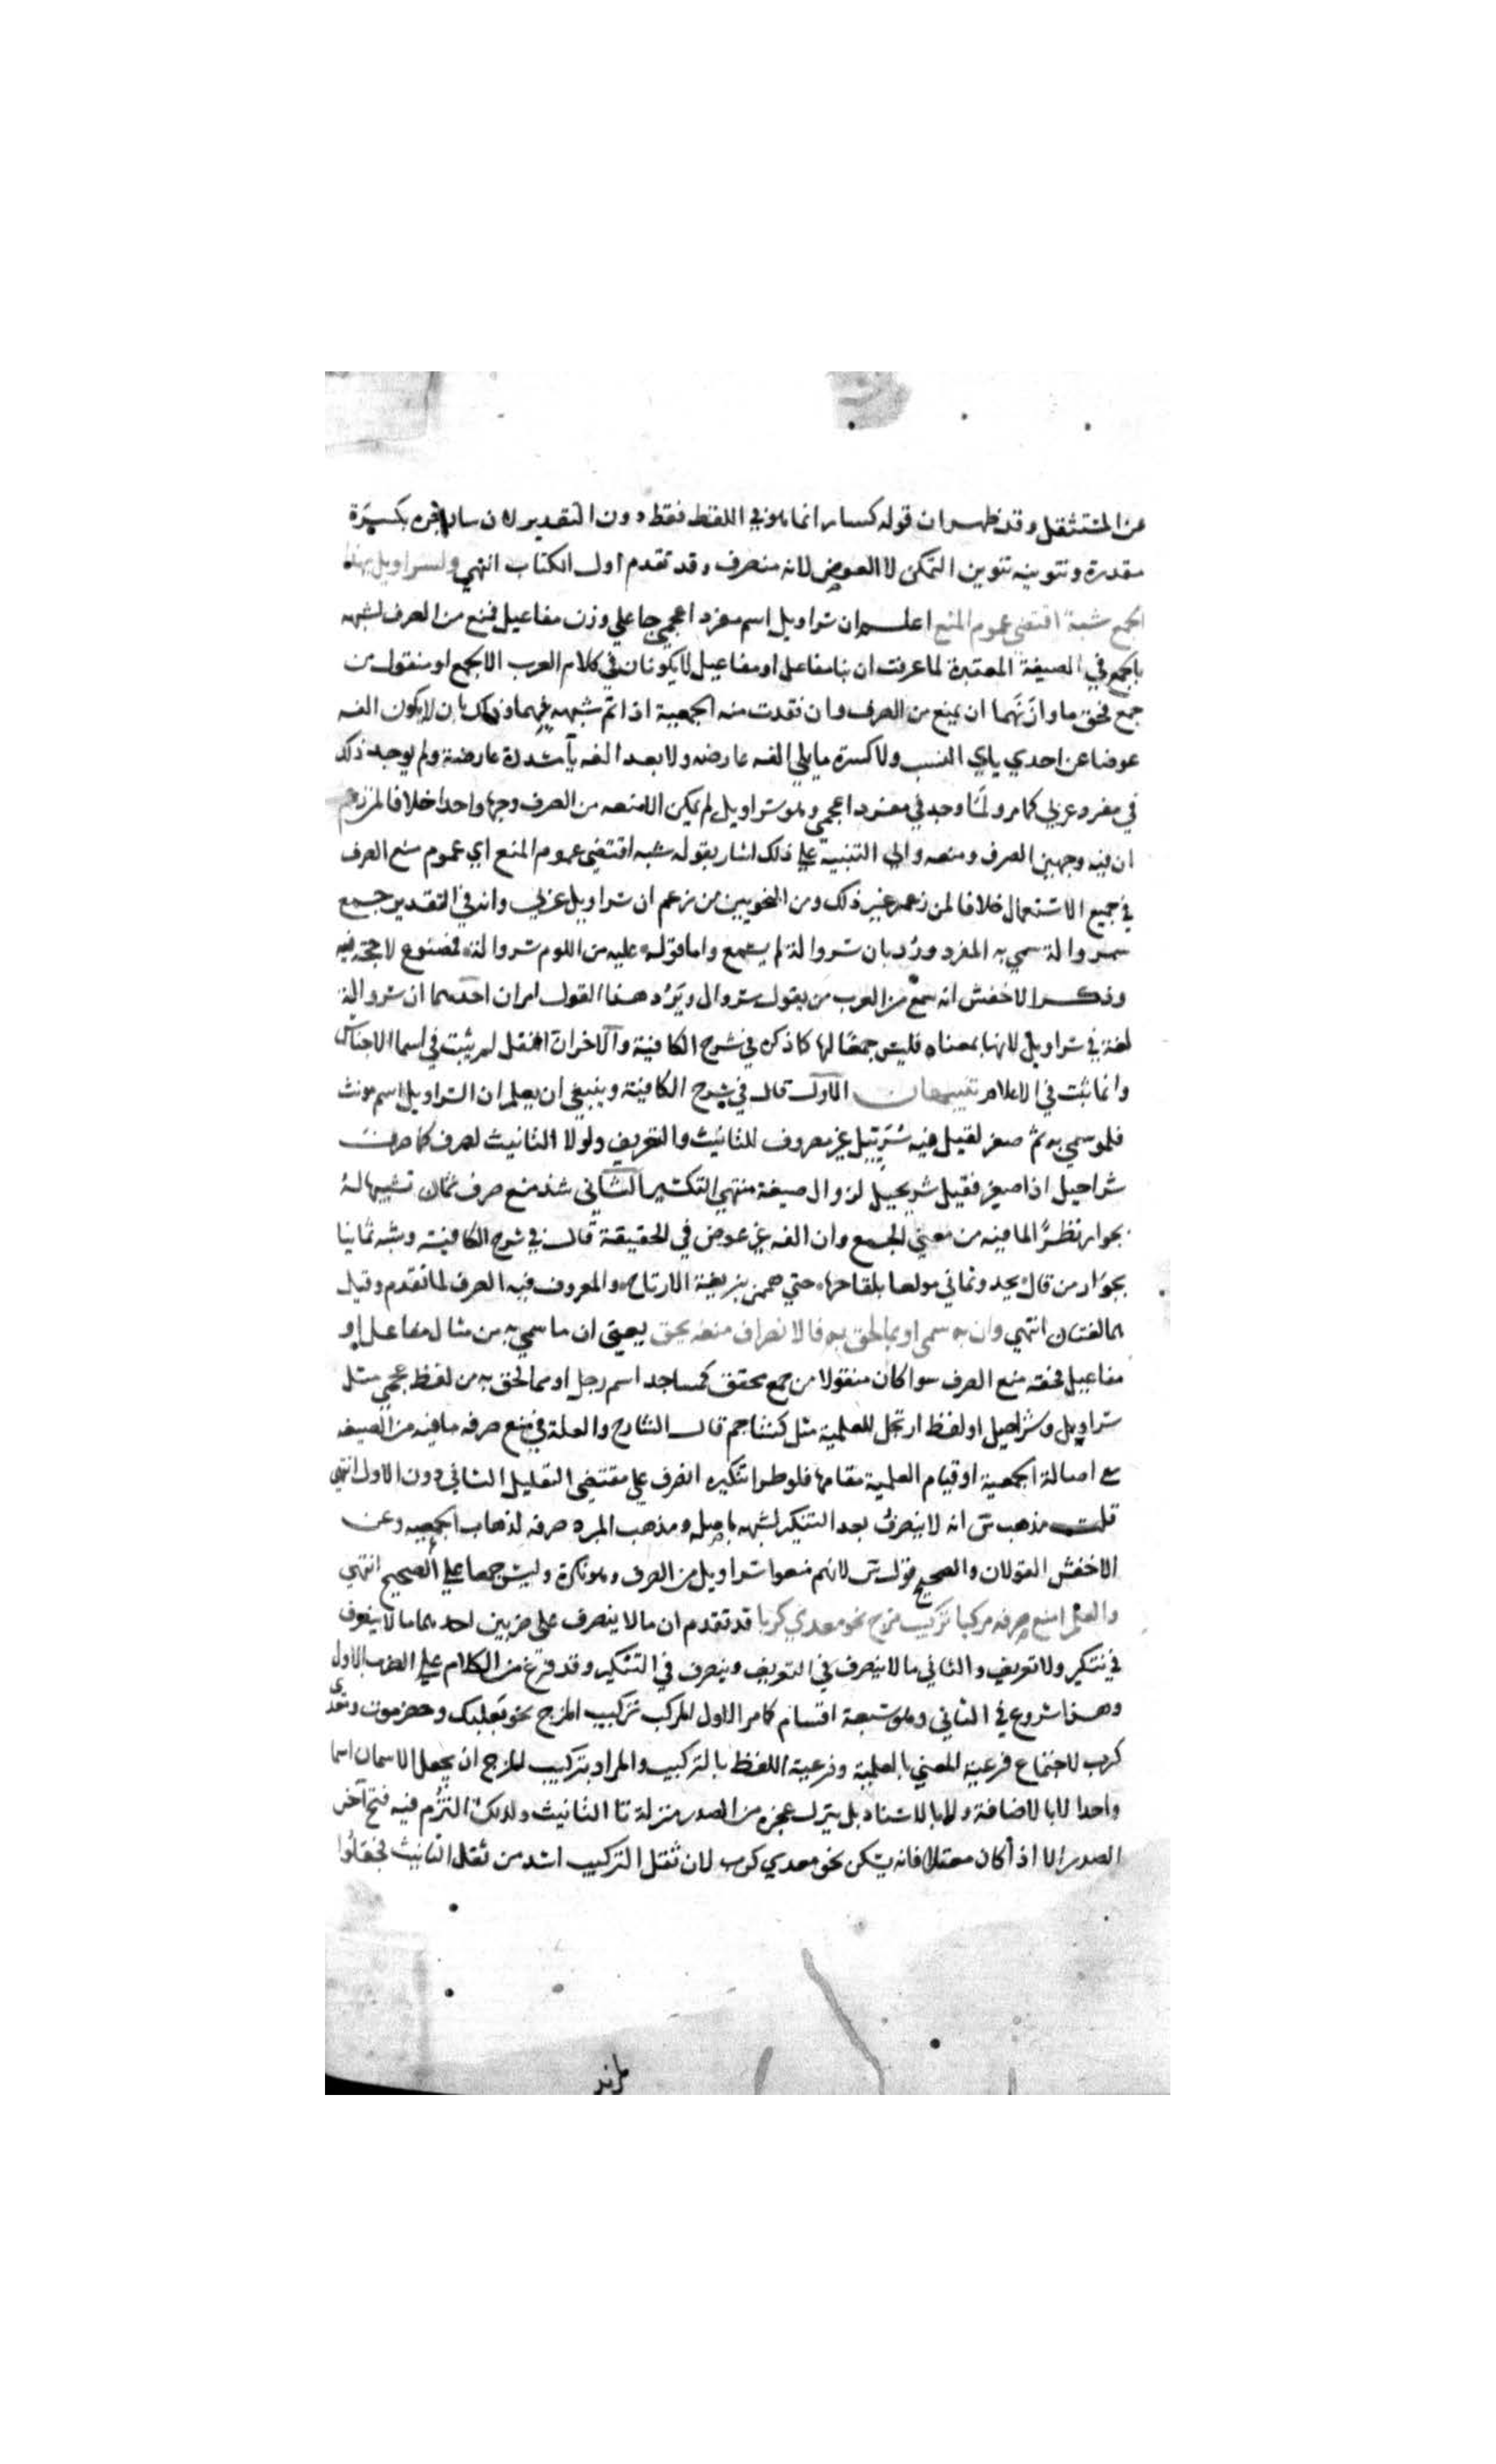 عن المستثقل وقد ظهر ان قوله كسار انما هو في اللفظ فقط دون التقدير لان سار جره بكسرة
مقدرة وتنوينه تنوين التمكن لا العوض لانه منصرف وقد تقدم اول الكتاب انتهي ولسراويل بهذا
الجمع شبه اقتضي عموم المنع اعلم ان سراويل اسم مفرد اعجمي جا علي وزن مفاعيل فمنع من الصرف لشبهه
بالجمع في الصيغة المعتبرة لما عرفت ان بنا مفاعل او مفاعيل لا يكونان في كلام العرب الا لجمع او منقول من
جمع فحق ما وازنهما ان يمنع من الصرف وان فقدت منه الجمعية اذا تم شبهه بهما وذلك بان لا يكون الفه
عوضا عن احدي ياي النسب ولا كسرة ما يلي الفه عارضه ولا بعد الفه يآ مشددة عارضة ولم يوجد ذلك
في مفرد عربي كما مر ولما وجد في مفرد اعجمي وهو سراويل لم يكن الا منعه من الصرف وجها واحدا خلافا لمن زعم
ان فيه وجهين الصرف ومنعه والي التنبيه علي ذلك اشار بقوله شبه اقتضي عموم المنع اي عموم منع الصرف
في جميع الاستعمال خلافا لمن زعم غير ذلك ومن النحويين من زعم ان سراويل عربي وانه في التقدير جمع
سروالة سمي به المفرد ورُد بان سروالة لم يسمع واما قوله عليه من اللوم سروالة فمصنوع لا حجة فيه
وذكر الاخفش انه سمع من العرب من يقول سروال ويَرُد هذا القول امران احدهما ان سروالة
لغة في سراويل لانها بمعناه فليس جمعًا لها كما ذكره في شرح الكافية والاخر ان النقل لم يثبت في اسما الاجناس
وانما ثبت في الاعلام تنبيهان الاول قال في شرح الكافية وينبغي ان يعلم ان السراويل اسم مونث
فلو سمي به ثم صغر لقيل فيه سُرَيّيل غير مصروف للتانيث والتعريف ولولا التانيث لصرف كما صرف
شراحيل اذا صغر فقيل شريحيل لزوال صيغة منتهي التكسير الثاني شذ منع صرف ثمان تشبيها له
بجوار نظرًا لما فيه من معني الجمع وان الفه غير عوض في الحقيقة قال في شرح الكافية وشبه ثمانيا
بجوار من قال يحدو ثماني مولعا بلقاحها حتي هممن بزيغة الارتاج والمعروف فيه الصرف لما تقدم وقيل
هما لغتان انتهي وان به سمي او بما لحق به فالانصراف منعه يحق يعني ان ما سمي به من مثال مفاعل او
مفاعيل فحقه منع الصرف سوا كان منقولا من جمع محقق كمساجد اسم رجل او مما لحق به من لفظ عجمي مثل
سراويل وشراحيل او لفظ ارتجل للعلمية مثل كشاجم قال الشارح والعلة في منع صرفه ما فيه من الصيغه
مع اصالة الجمعية او قيام العلمية مقامها فلو طرا تنكيره انصرف علي مقتضي التعليل الثاني دون الاول انتهي
قلت مذهب س انه لا ينصرف بعد التنكير لشبهه باصله ومذهب المبرد صرفه لذهاب الجمعيه وعن
الاخفش القولان والصحيح قول س لانهم منعوا سراويل من الصرف وهو نكرة وليس جمعا علي الصحيح انتهي
والعلم امنع صرفه مركبا تركيب مزج نحو معدي كربا قد تقدم ان ما لا ينصرف على ضربين احدهما ما لا ينصرف
في تنكير ولا تعريف والثاني ما لا ينصرف في التعريف وينصرف في التنكير وقد فرغ من الكلام علي الضرب الاول
وهذا شروع في الثاني وهو سبعة اقسام كما مر الاول المركب تركيب المزج نحو بعلبك وحضرموت ومعدي
كرب لاجتماع فرعية المعني بالعلمية وفرعية اللفظ بالتركيب والمراد بتركيب المزج ان يجعل الاسمان اسما
واحدا لا بالاضافة ولا بالاسناد بل ينزل عجزه من الصدر منزلة تا التانيث ولذلك التزم فيه فتح آخر
الصدر الا اذا كان معتلا فانه يسكن نحو معدي كرب لان ثقل التركيب اشد من ثقل التانيث فجعلوا